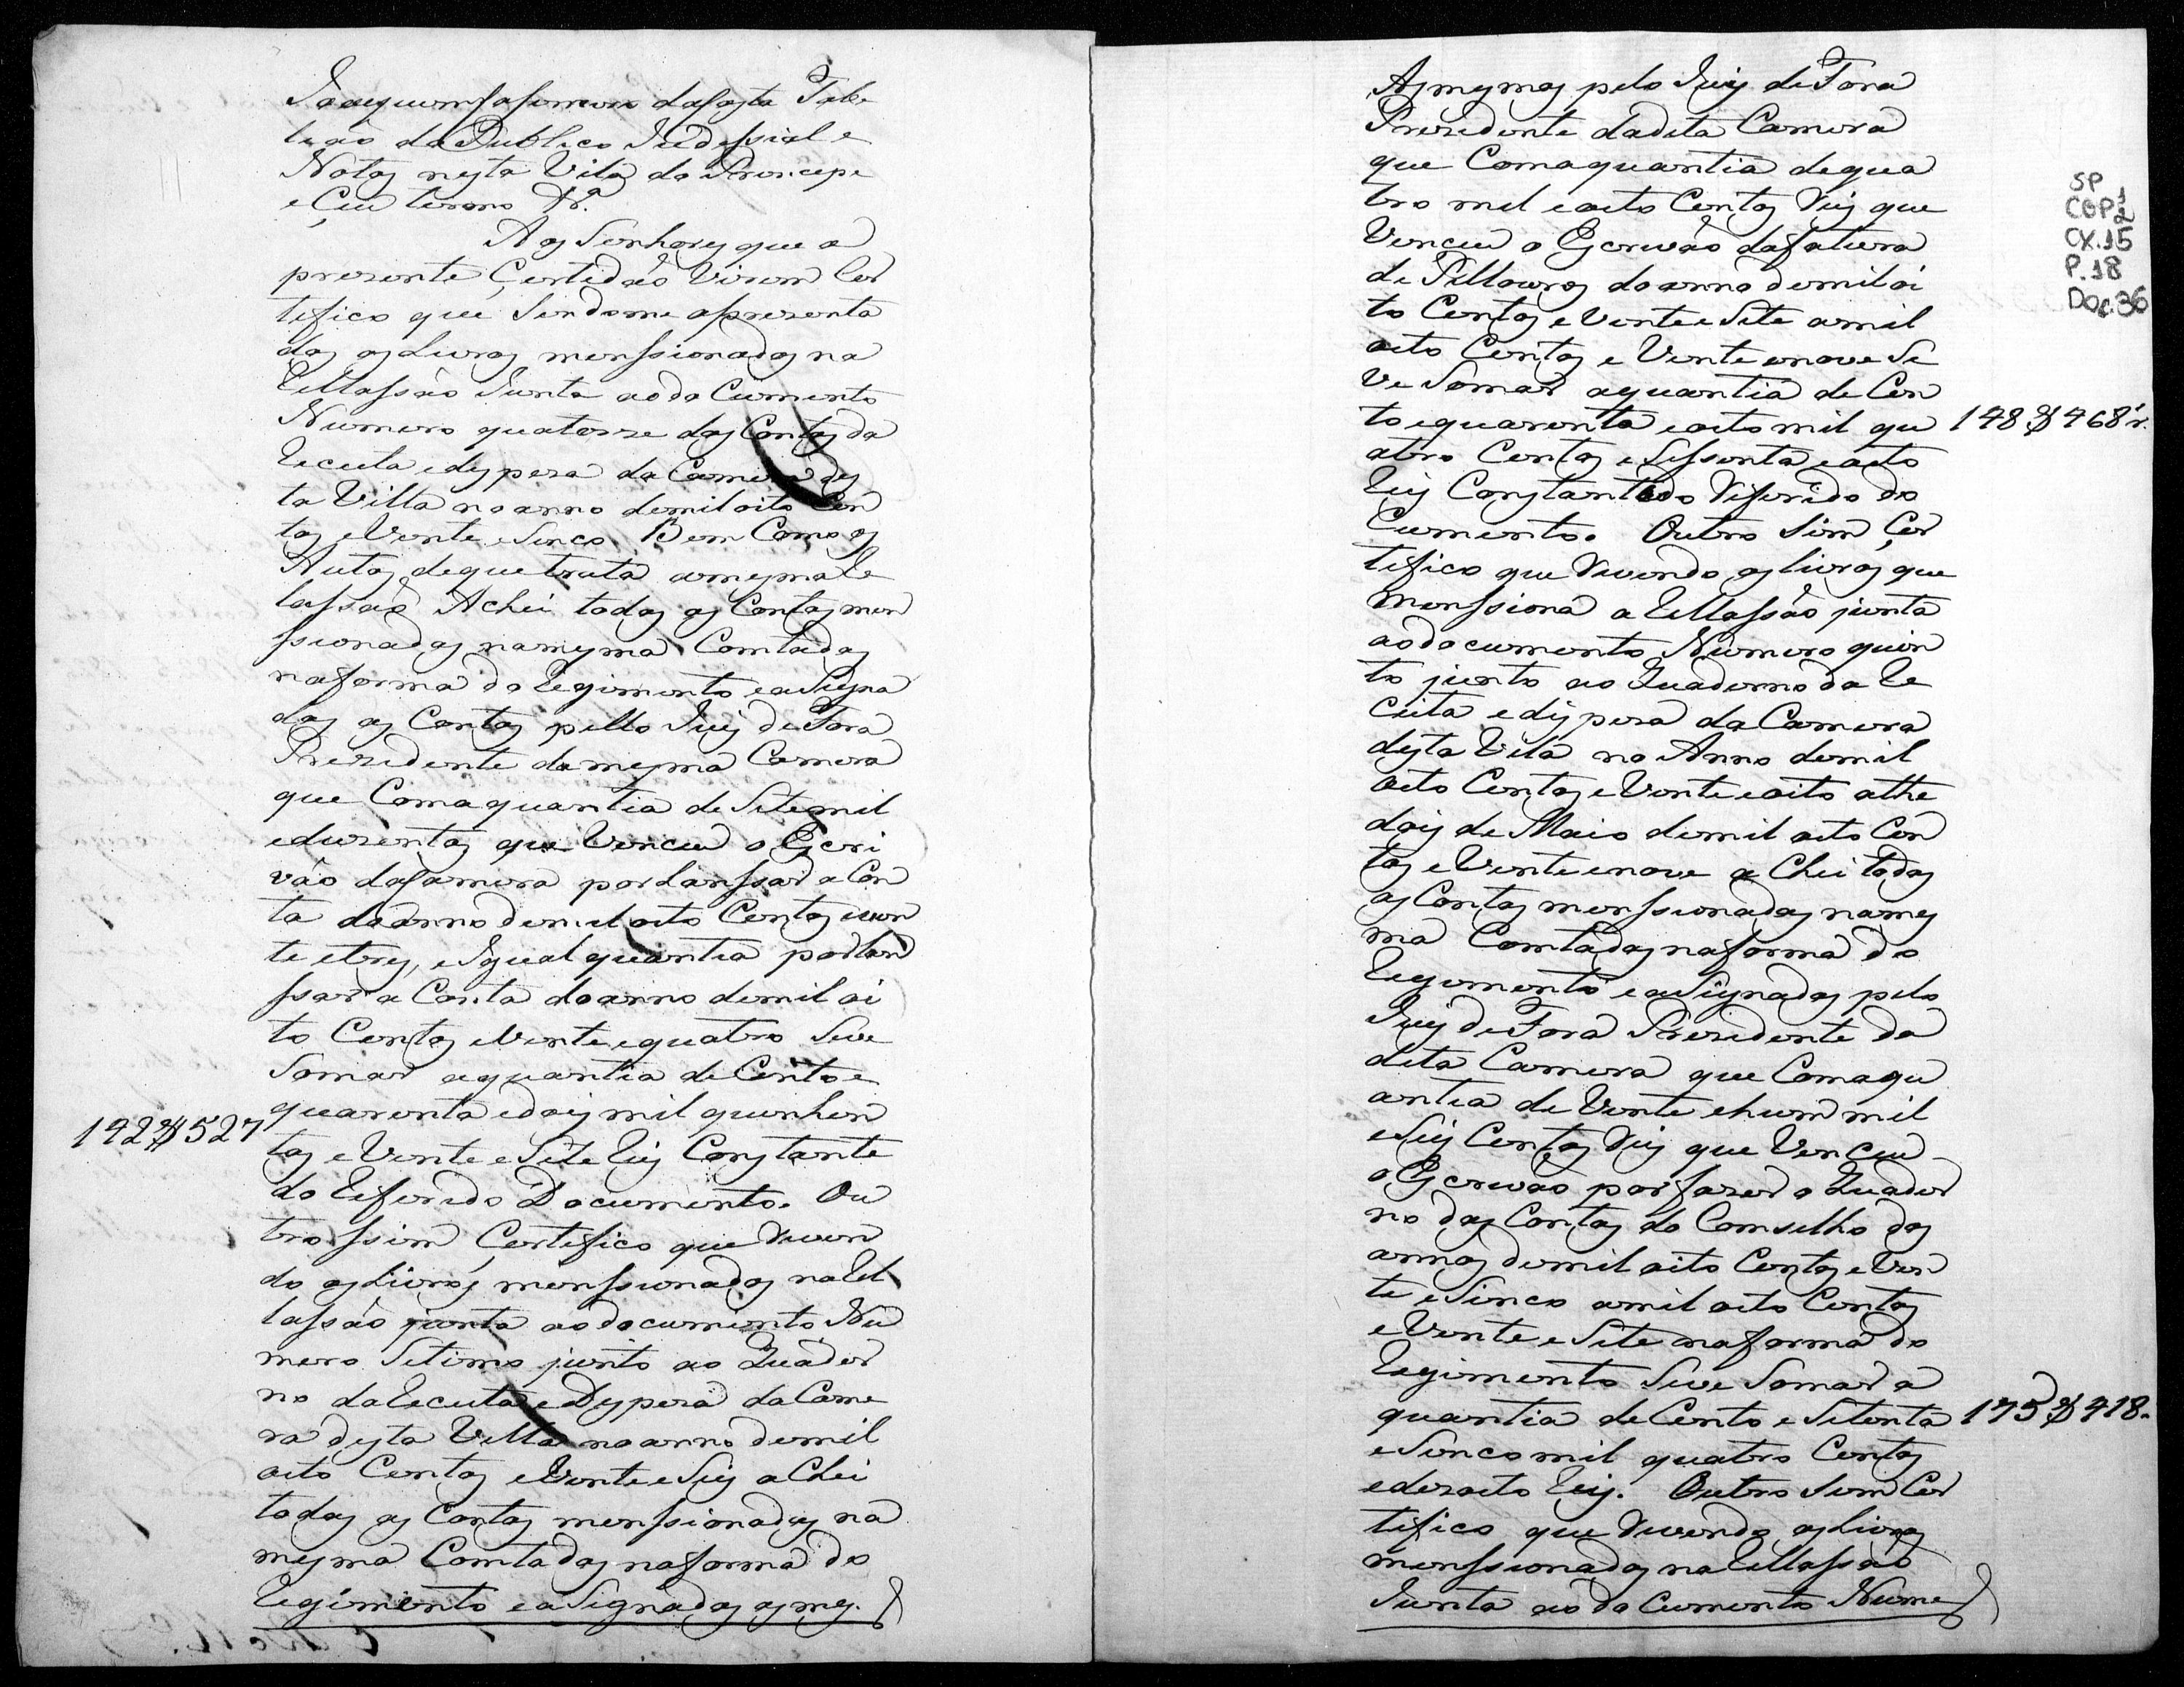 Joaquim da Costa Tabe
leão do Publico Judessial e
Notas nesta Vila do Prencepe
e Ceu termo &ª.
Aos Senhores que a
prezente Certidão Virem Cer
tefico que Sendome aprezenta
dos os Livros menssionados na
Rellassão Junta ao do Cumento
Numero quatorze das Contas da
Receita e despeza da Camera des
ta Villa no anno demil oito Cen
tos e Vente e Sinco. Bem Como os
Autos deque trata amesma Re
lassão Achei todas as Contas men
ssionadas namesma Comtadas
naforma do Regimento e aSigna
das as Contas pello Juis de Fora
Prezidente da mesma Camera
que Comaquantia de Setemil
eduzentos que Venceu o Escri
vão daCamera porlanssar a Con
ta doanno demil oito Centos even
te etres, e Igual quantia porlan
ssar a Conta doanno demil oi
to Centos eVente equatro Seve
Somar aquantia de Cento e
quarenta edois mil quinhen
tos e Vente e Sete Reis Constante
142$527
do Referido Documento. Ou
tro ssim Certefico que Reven
do os Livros menssionados na Rel
lassão junta ao documento Nu
mero Setimo junto ao Quader
no da Receita e Despeza da Came
ra desta Villa no anno demil
oito Centos eVente e Seis a Chei
todas as Contas menssionadas na
mesma Comtadas naforma do
Regimento e aSignadas as mes.
Asmesmas pelo Juis de Fora
Prezidente dadita Camera
que Comaquantia dequa
tro mil e oito Centos Reis que
Venceu o Escrivão dafatura
de Pillouros do anno demil oi
to Centos e Vente e Sete amil
oito Centos e Vente enove Se
Ve Somar aquantia de Cen
to equarenta eoito mil qu
148$468 r.
atro Centos e Sessenta eoito
Reis Constante do Referido do
Cumento. Outro Sim Cer
tefico que Revendo os livros que
menssiona a Rellassão junta
ao documento Numero quin
to junto ao Quaderno da Re
ceita e despeza da Camera
desta Vila no Anno demil
oito Centos e Vente e oito athe
dois de Maio demil oito Cen
tos e Vente enove a Chei todas
as Contas menssionadas names
ma Comtadas naforma do
Regemento e aSignadas pelo
Juis de Fora Prezidente da
dita Camera que Comaqu
antia de Vente ehum mil
e Seis Centos Reis que Venceu
o Escrivão por fazer o Quader
no das Contas do Comselho dos
annos demil oito Centos e Ven
te e Sinco amil oito Centos
e Vente e Sete naforma do
Regimento Seve Somar a
quantia de Cento e Setenta
175$418.
e Sinco mil quatro Centos
e dezoito Reis. Outro Sim Cer
tifico que Revendo os Livros
menssionados na Rellassão
Junta ao do Cumento Nume
SP
COP1
2
CX.15
P.18
Doc.36